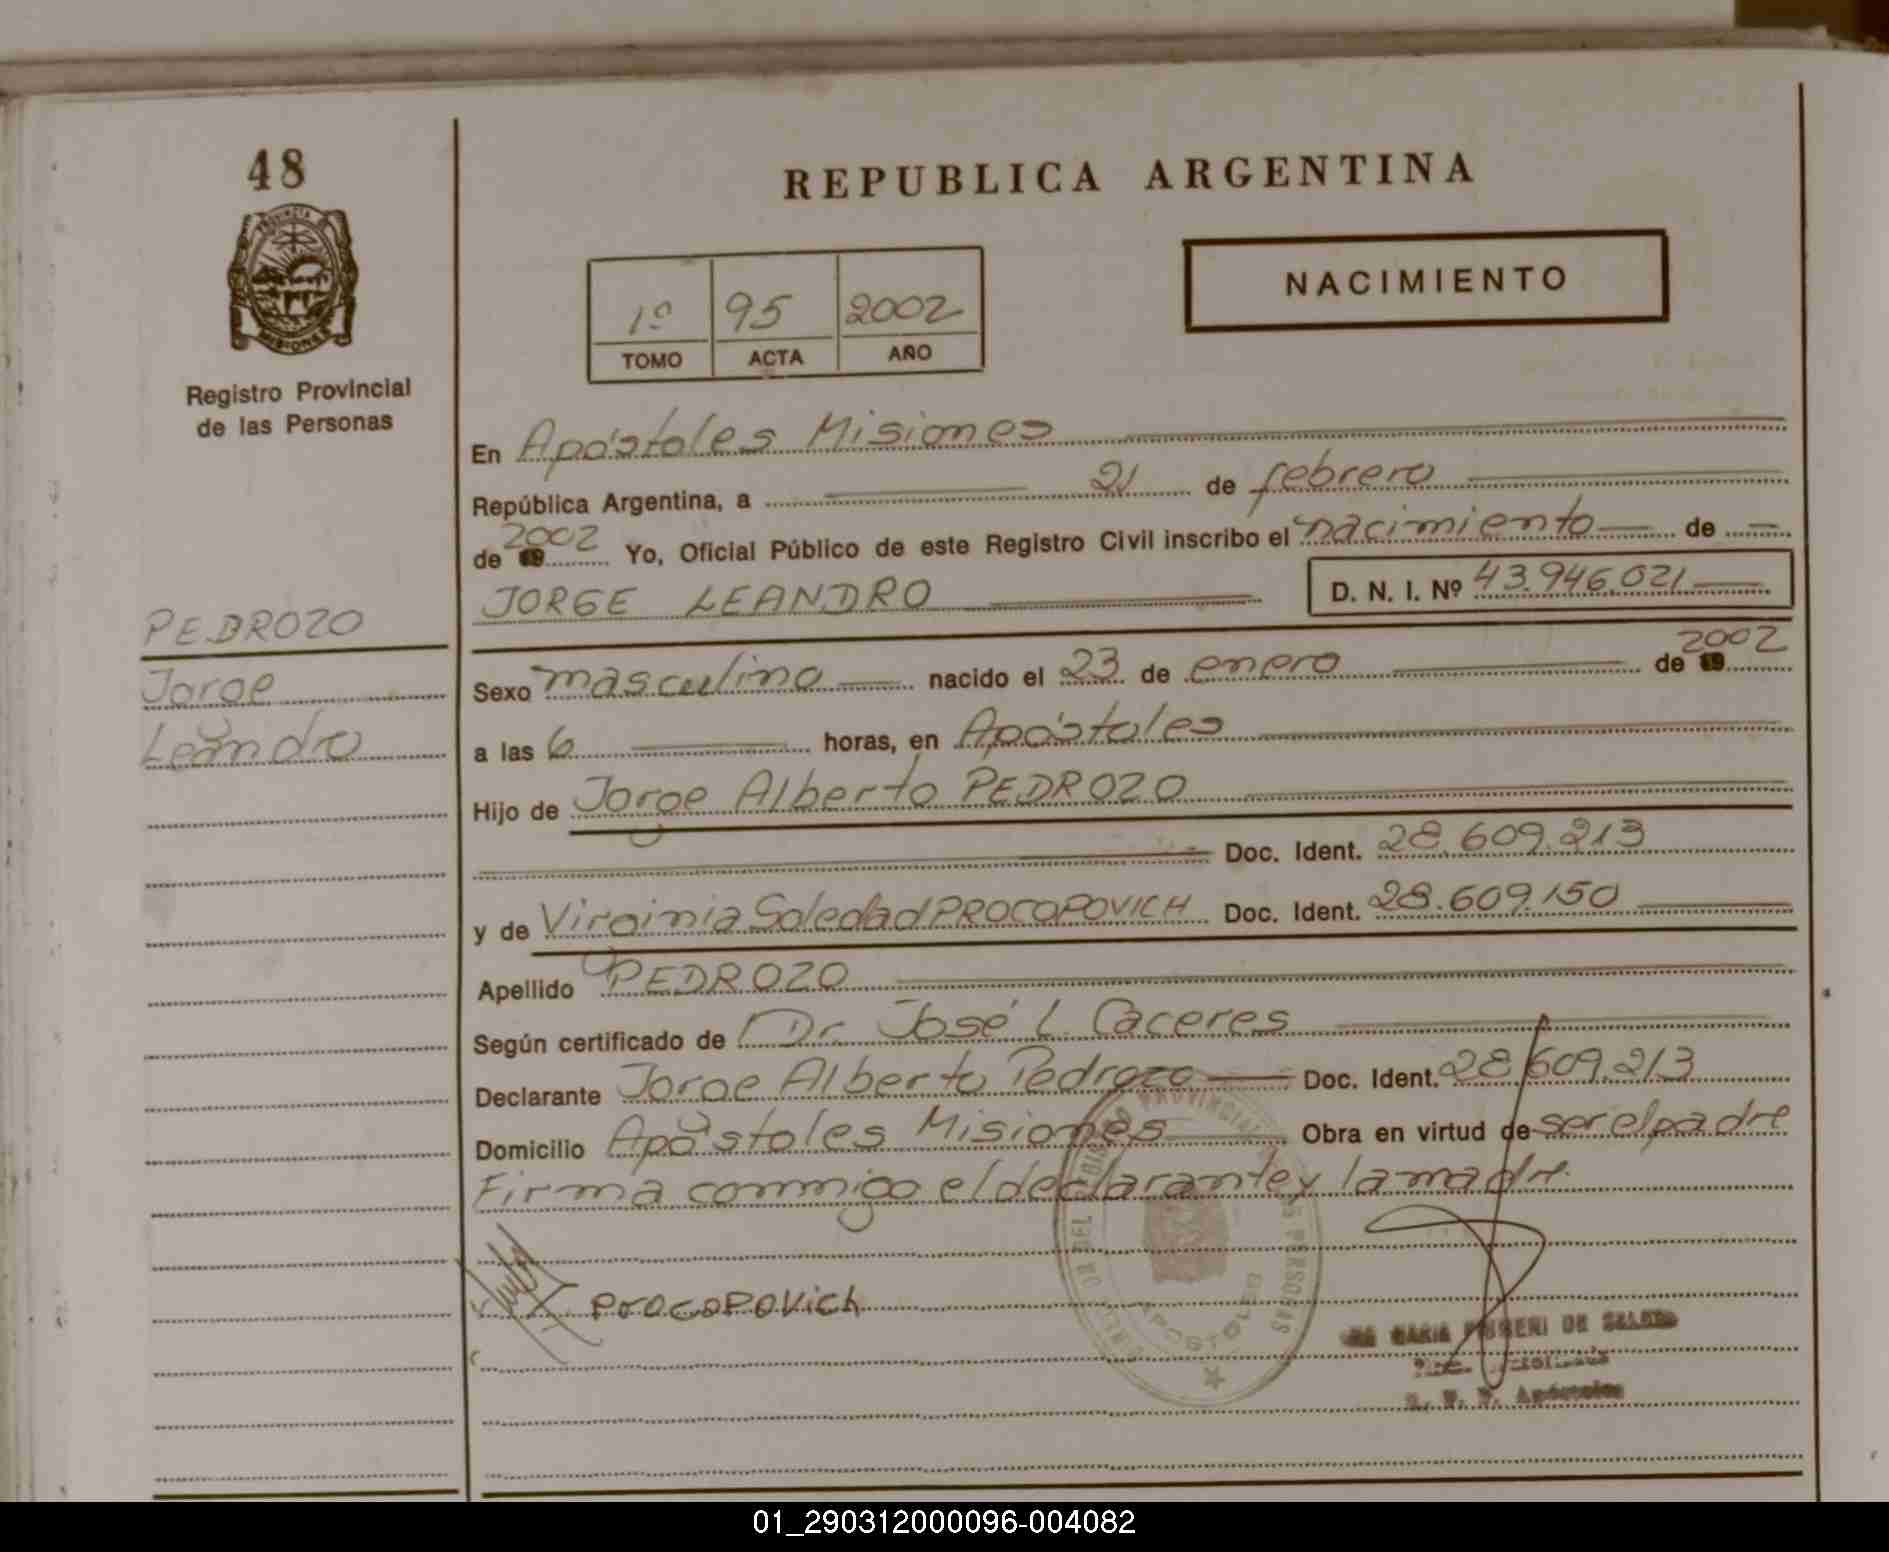 48
PROVINCIA
MISIONES
Registro Provincial
de las Personas
PEDROZO
Jorge
Leandro
REPUBLICA ARGENTINA
1º 95 2002
TOMO ACTA AÑO
NACIMIENTO
En Apóstoles Misiones
República Argentina, a 21 de febrero
de 2002 Yo, Oficial Público de este Registro Civil inscribo el nacimiento de
JORGE LEANDRO D. N. I. Nº 43.946.021
Sexo masculino nacido el 23 de enero de 2002
a las 6 horas, en Apóstoles
Hijo de Jorge Alberto PEDROZO
Doc. Ident. 28.609.213
y de Virginia Soledad PROCOPOVICH Doc. Ident. 28.609.150
Apellido PEDROZO
Según certificado de Dr. José L. Caceres
Declarante Jorge Alberto Pedrozo Doc. Ident. 28.609.213
Domicilio Apóstoles Misiones Obra en virtud de ser el padre
Firma conmigo el declarante y la madre
PROCOPOVich
PROVINCIAL
PERSONAS
APOSTOLES
MARIA DE
Apóstoles
01_290312000096-004082